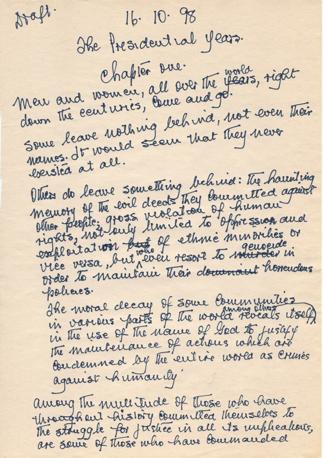 Draft.
16. 10. 98
The Presidential Years.
Chapter one.
Men and women, all over the world years, right
down the centuries, come and go.
Some leave nothing behind, not even their
names. It would seem that they never
existed at all.
Others do leave something behind: the haunting
memory of the evil deeds they committed against
other people; gross violation of human
rights, not only limited to oppression and
exploitation but of ethnic minorities or
vice versa, but who even resort to murder genocide in
order to maintain their dominant horrendous
policies.
The moral decay of some communities
in various parts of the world reveals itself among others
in the use of the name of God to justify
the maintenance of actions which are
condemned by the entire world as crimes
against humanity.
Among the multitude of those who have
throughout history committed themselves to
the struggle for justice in all its implications,
are some of those who have commanded